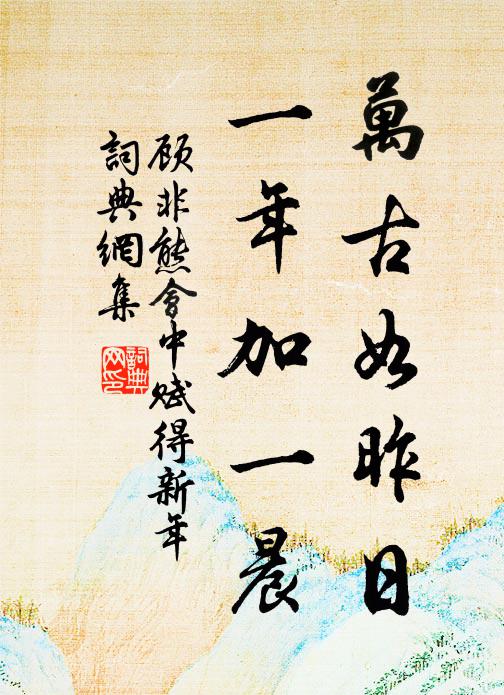 萬古如昨日
一年加一晨
顾非熊會中賦得新年
詞典網集
詞典網印